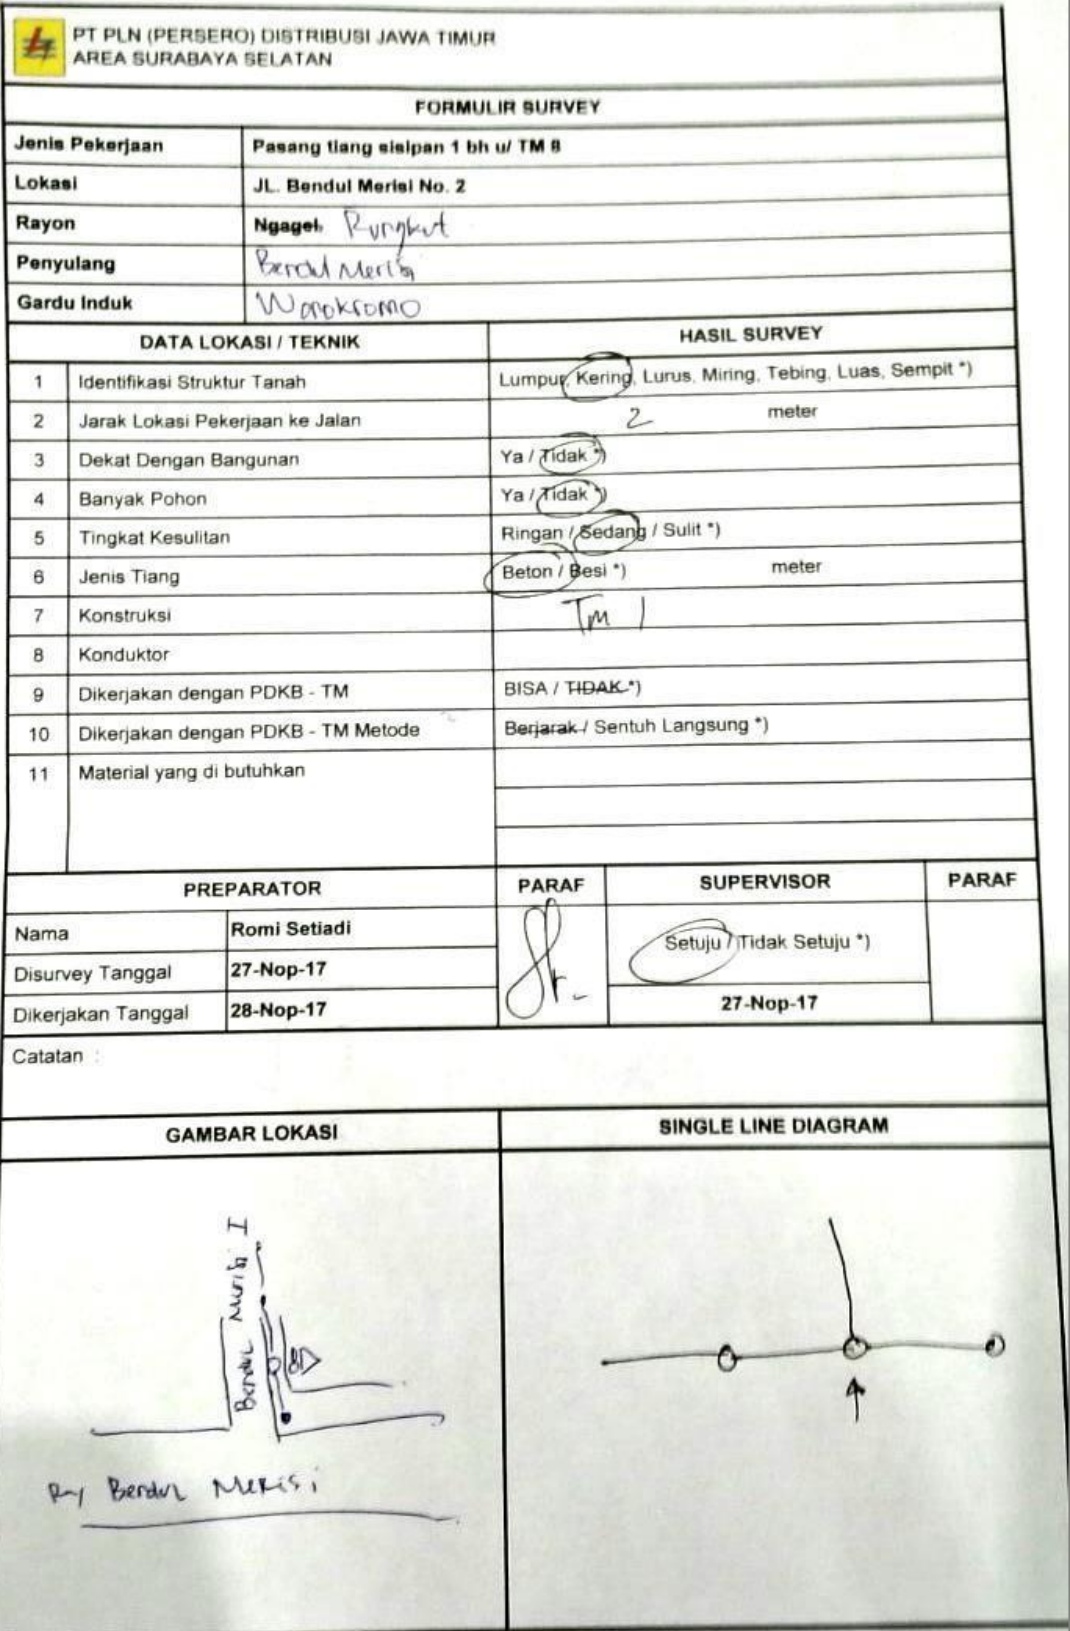 PT PLN (PERSERO) DISTRIBUSI JAWA TIMUR
AREA SURABAYA SELATAN
FORMULIR SURVEY
Jenis Pekerjaan Pasang tiang sisipan 1 bh u/ TM 8
Lokasi JL. Bendul Merisi No. 2
Rayon Ngagel Rungkut
Penyulang Bendul Merisi
Gardu Induk Wonokromo
DATA LOKASI / TEKNIK HASIL SURVEY
1 Identifikasi Struktur Tanah Lumpur, Kering, Lurus, Miring, Tebing, Luas, Sempit *)
2 Jarak Lokasi Pekerjaan ke Jalan 2 meter
3 Dekat Dengan Bangunan Ya / Tidak *)
4 Banyak Pohon Ya / Tidak *)
5 Tingkat Kesulitan Ringan / Sedang / Sulit *)
6 Jenis Tiang Beton / Besi *) meter
7 Konstruksi Tm 1
8 Konduktor
9 Dikerjakan dengan PDKB - TM BISA / TIDAK *)
10 Dikerjakan dengan PDKB - TM Metode Berjarak / Sentuh Langsung *)
11 Material yang di butuhkan
PREPARATOR PARAF SUPERVISOR PARAF
Nama Romi Setiadi Setuju / Tidak Setuju *)
Disurvey Tanggal 27-Nop-17
Dikerjakan Tanggal 28-Nop-17 27-Nop-17
Catatan :
GAMBAR LOKASI SINGLE LINE DIAGRAM
Bendul Merisi I
Ry Bendul Merisi